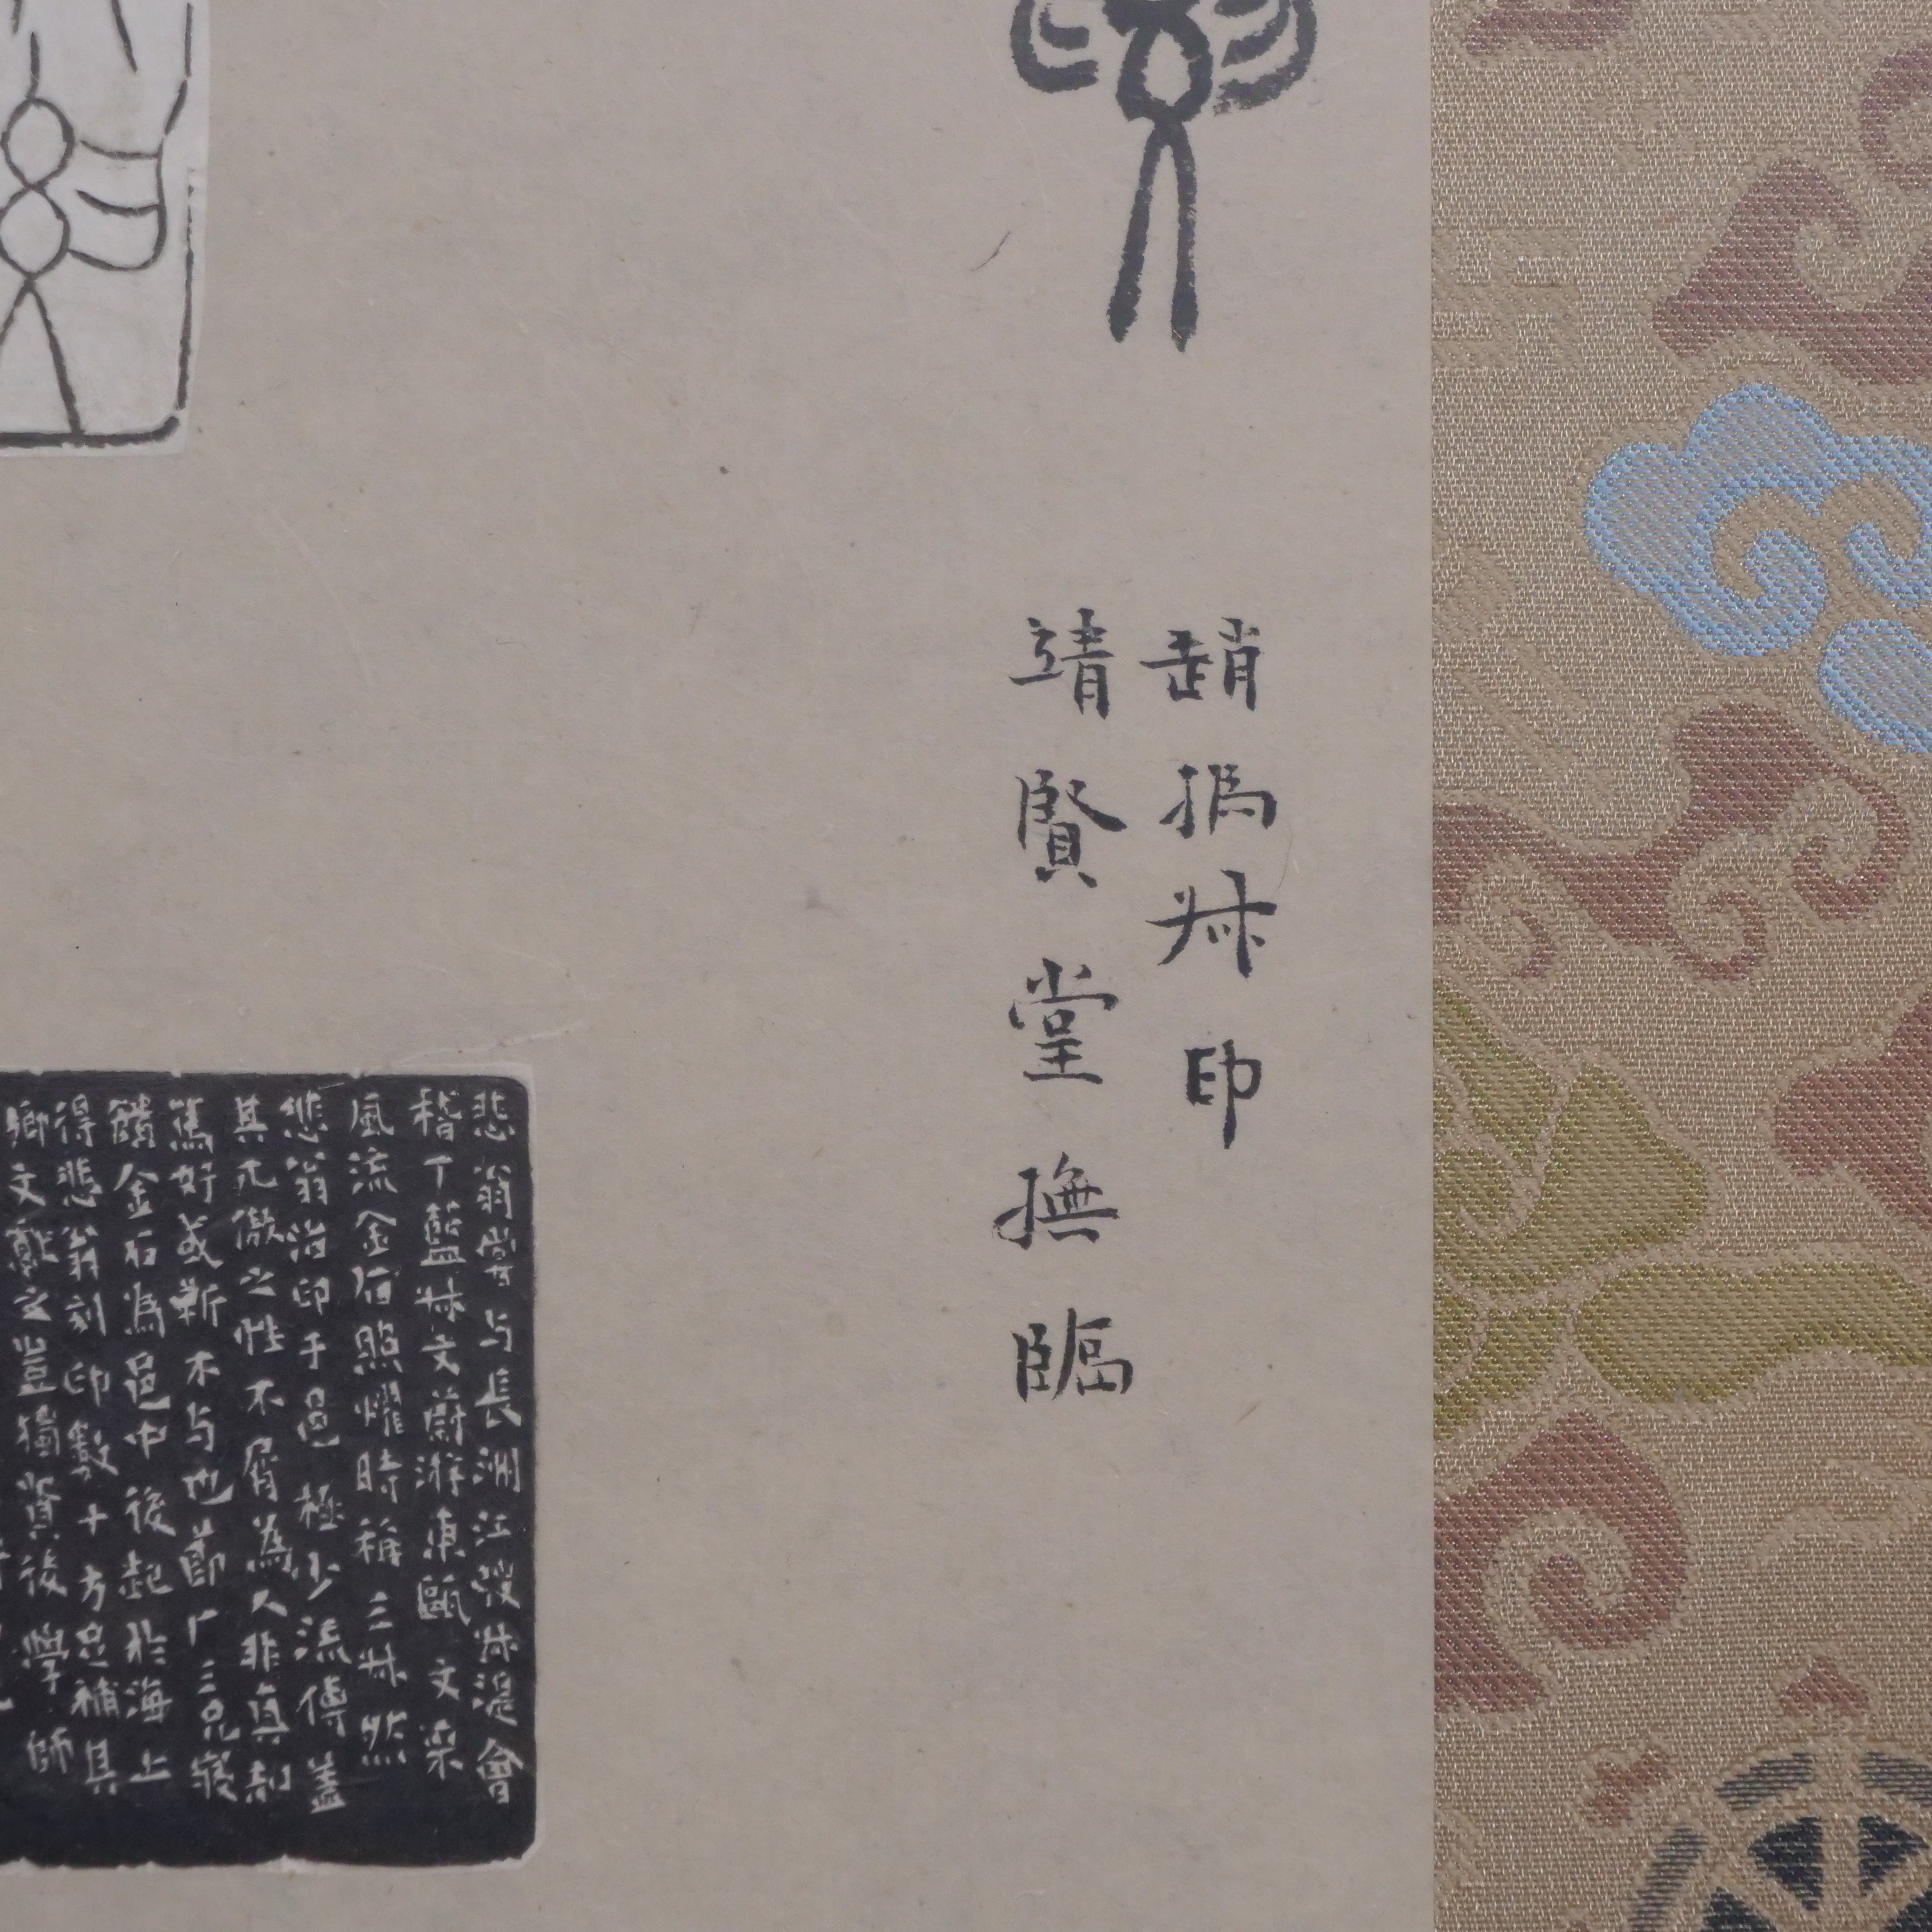 趙撝叔印
靖賢堂撫臨
悲翁嘗与長洲江弢叔湜會
稽丁藍叔文蔚游東甌文采
風流金石照燿時稱三叔然
悲翁治印于邑極少流傳蓋
其兀傲之性不屑為人非真知
篤好或靳不与也節厂三兄寢
饋金石為邑中後起於海上
得悲翁刻印數十方足補其
鄉文獻之豈獨資後學師